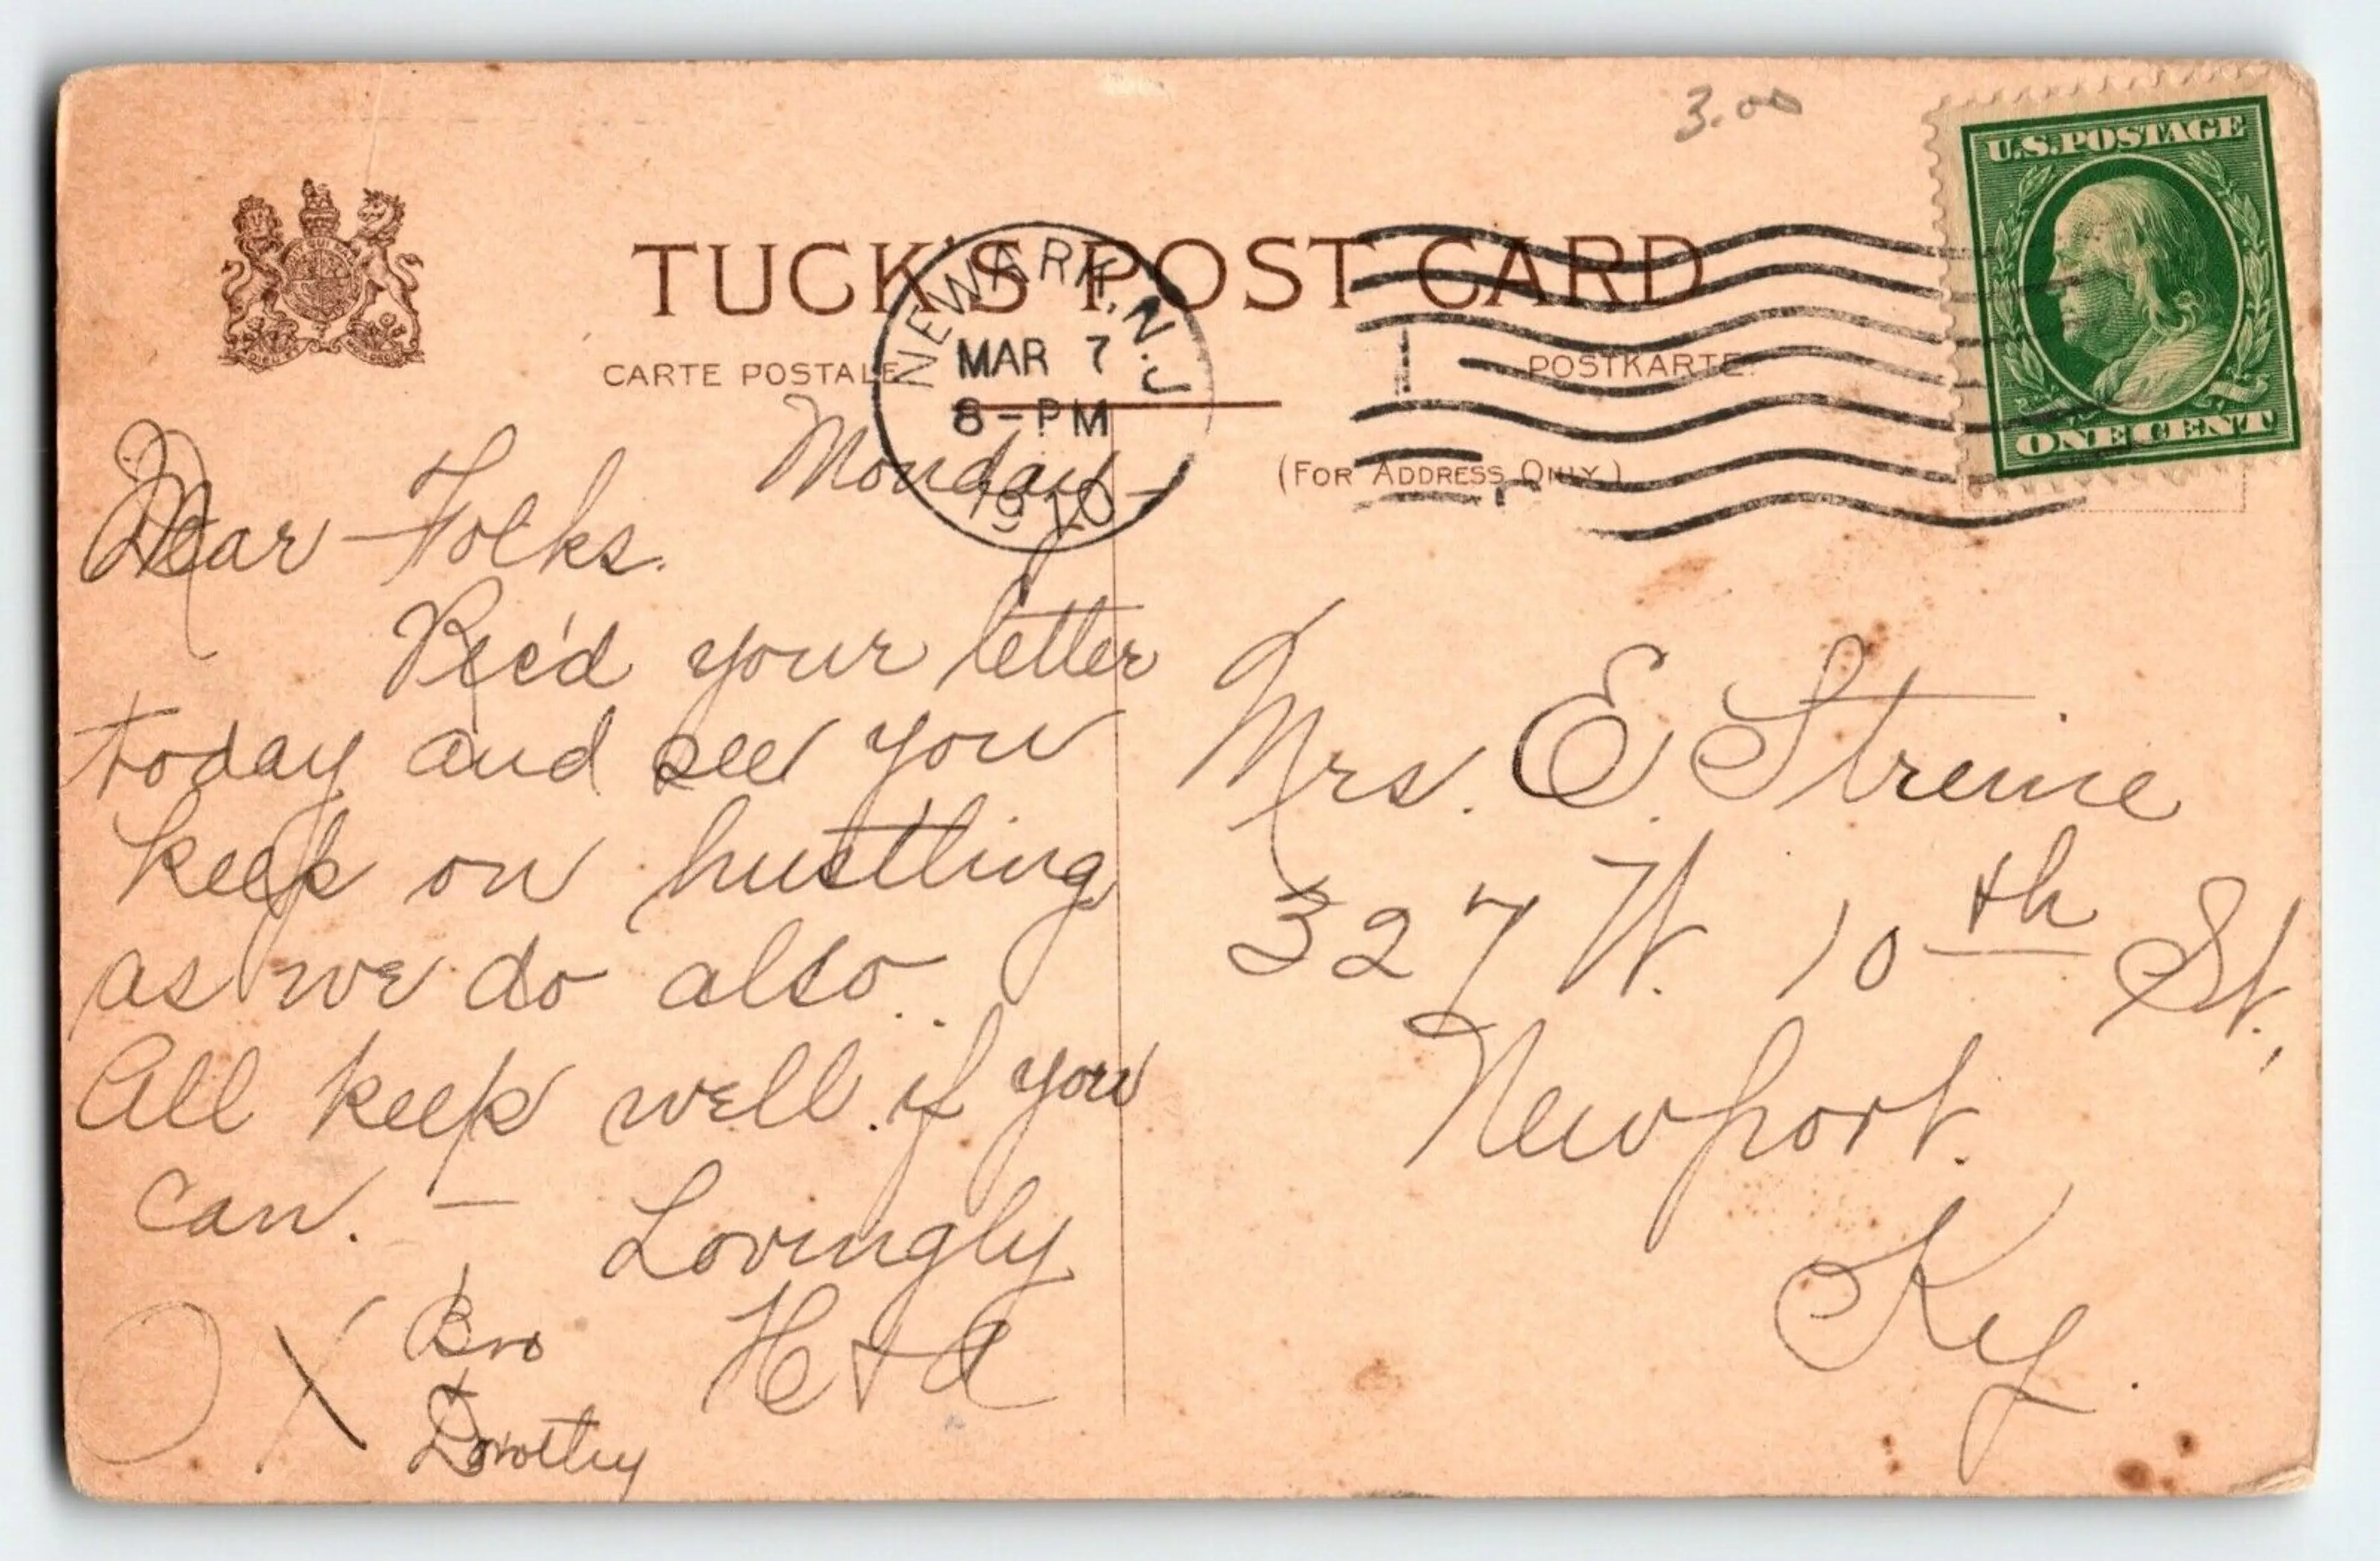 3.00
U.S. POSTAGE
ONE CENT
TUCK'S POST CARD
CARTE POSTALE
POSTKARTE.
(FOR ADDRESS ONLY.)
NEWARK, N.J.
MAR 7
8-PM
1910
Monday -
Dear Folks.
Rec'd your letter
today and see you
keep on hustling
as we do also..
All keep well if you
can. - Lovingly
H + A
O X Bro
+
Dorothy
Mrs. E. Streine
327 W. 10th St.,
Newport.
Ky.